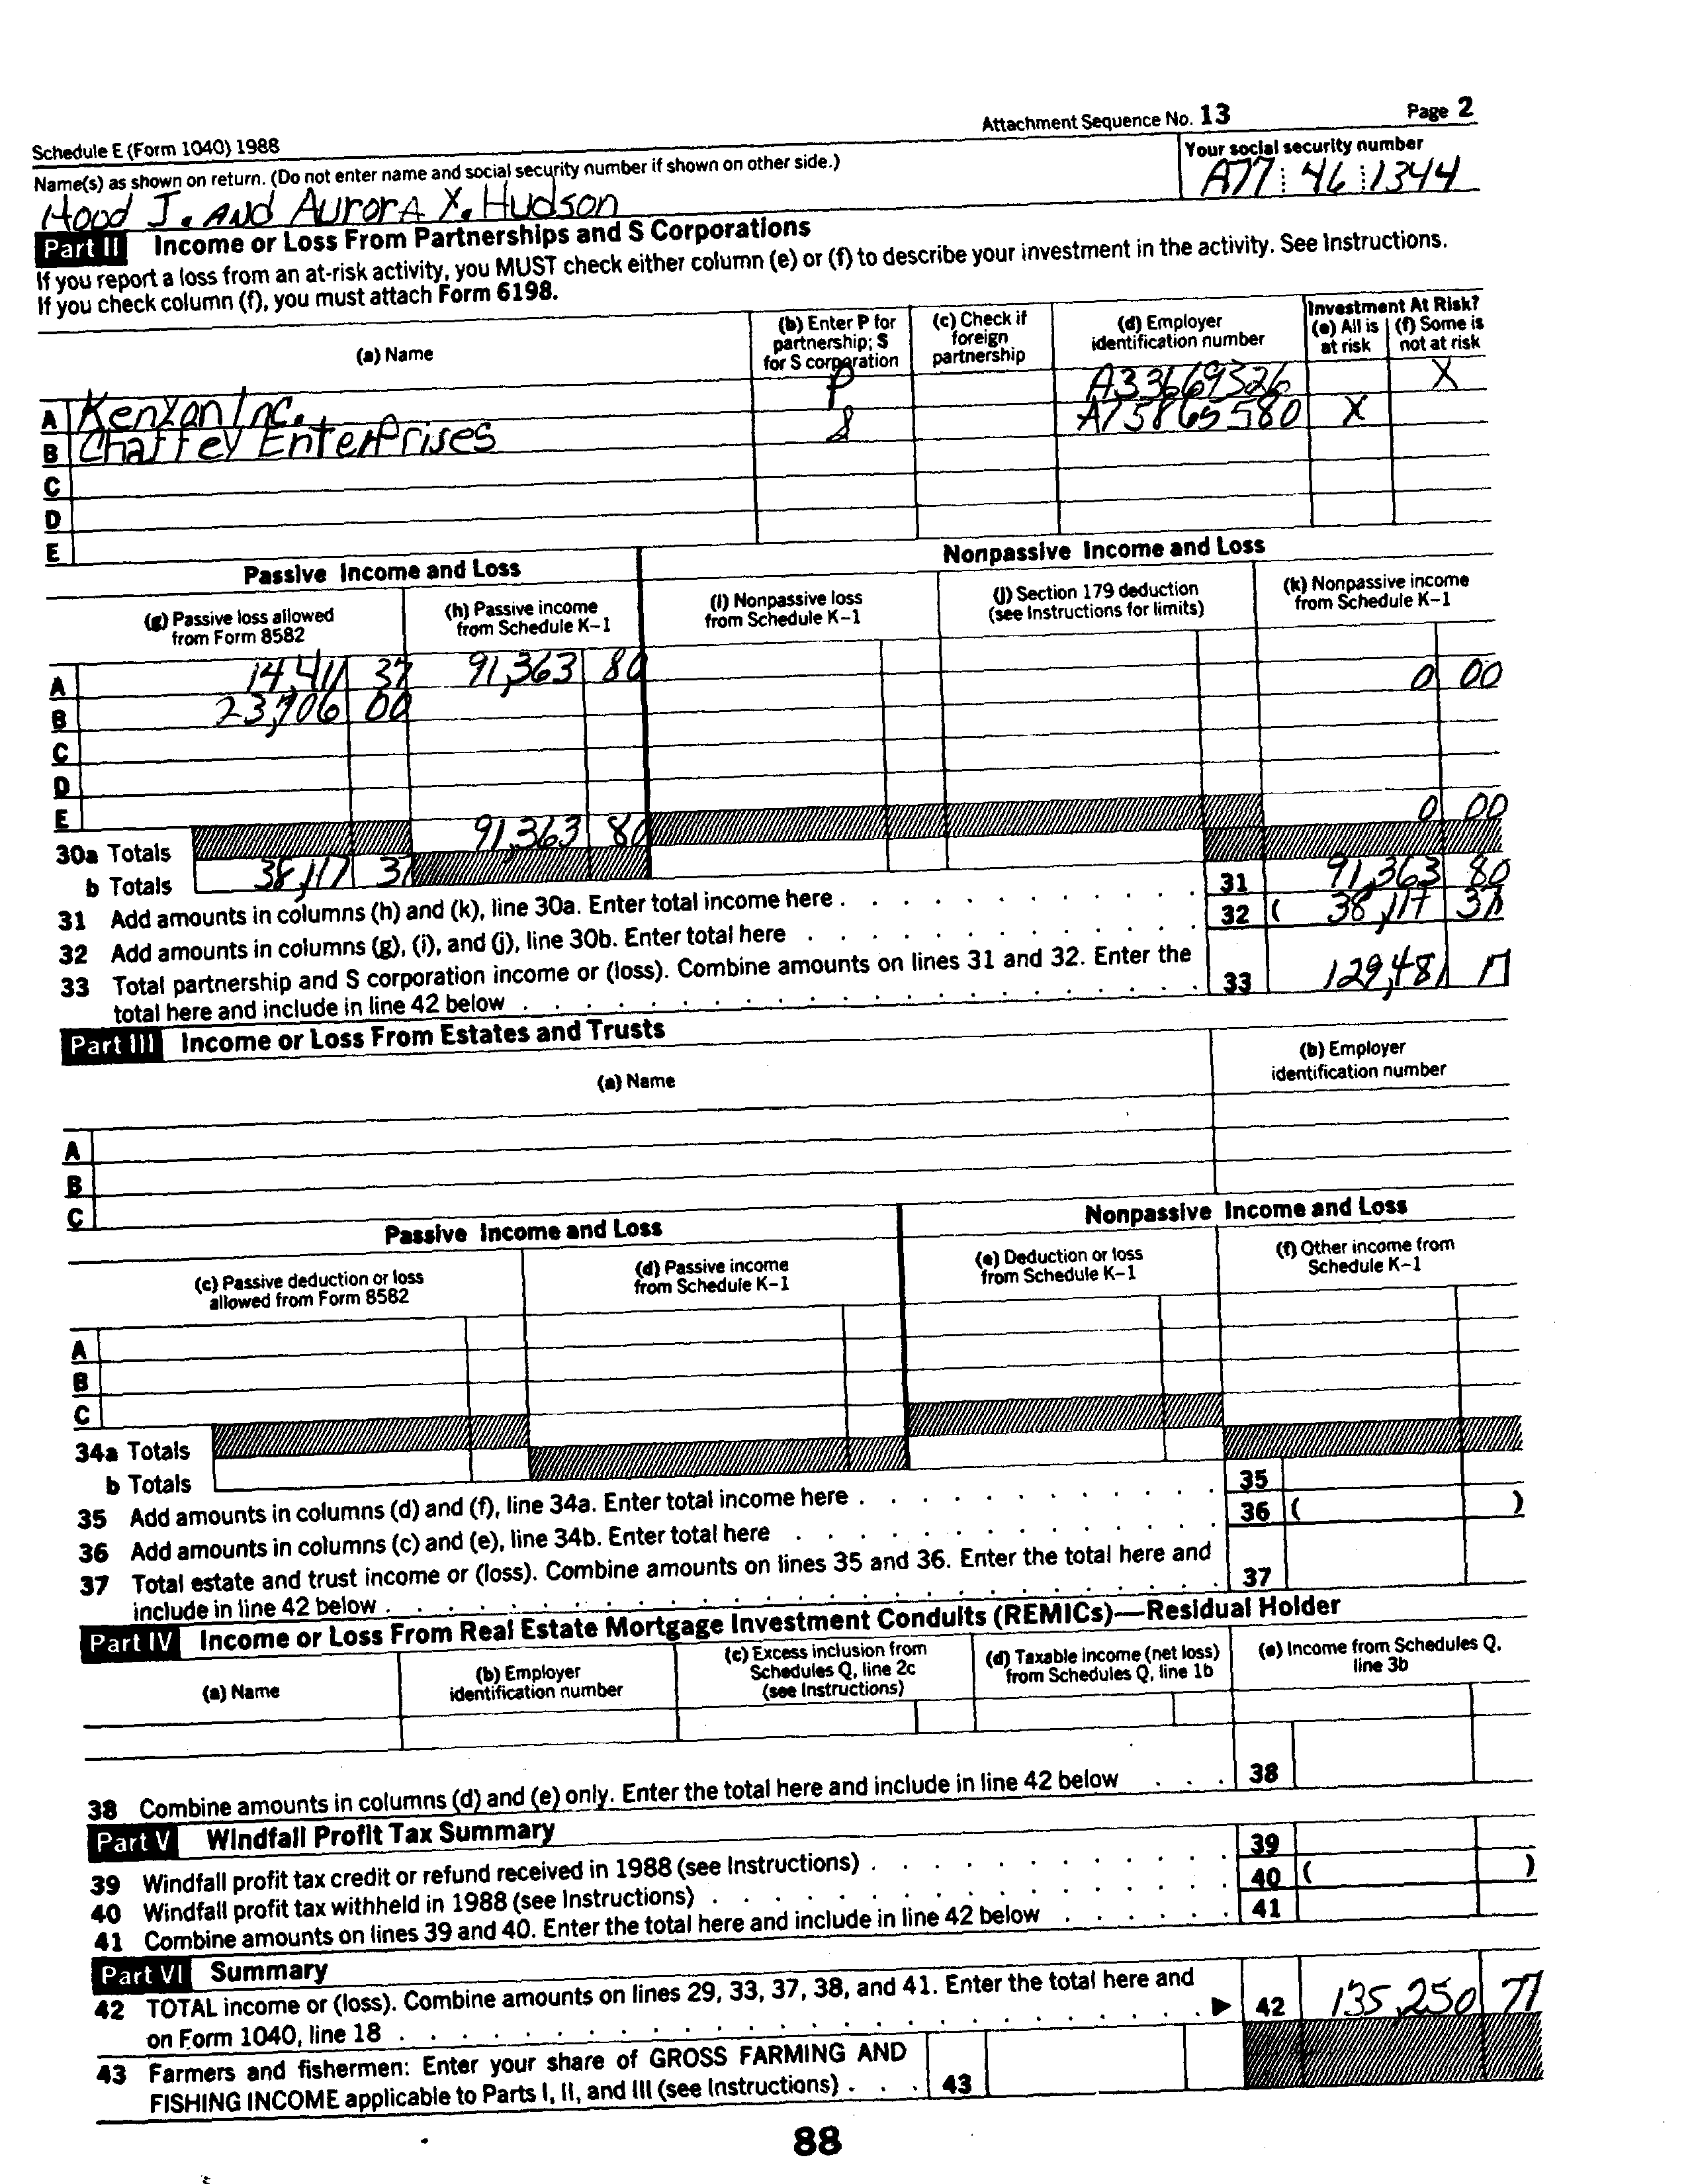 Schedule E (Form 1040) 1988 Attachment Sequence No. 13 Page 2
Name(s) as shown on return. (Do not enter name and social security number if shown on other side.) Your social security number
Hood J. AND AURORA X. Hudson A77 46 1344
Part II Income or Loss From Partnerships and S Corporations
If you report a loss from an at-risk activity, you MUST check either column (e) or (f) to describe your investment in the activity. See Instructions.
If you check column (f), you must attach Form 6198.
(a) Name (b) Enter P for partnership; S for S corporation (c) Check if foreign partnership (d) Employer identification number Investment At Risk? (e) All is at risk (f) Some is not at risk
A Kenyon Inc. P A33669326 X
B Chaffey Enterprises S A75865580 X
C
D
E
Passive Income and Loss Nonpassive Income and Loss
(g) Passive loss allowed from Form 8582 (h) Passive income from Schedule K-1 (i) Nonpassive loss from Schedule K-1 (j) Section 179 deduction (see Instructions for limits) (k) Nonpassive income from Schedule K-1
A 14,411 37 91,363 80 0 00
B 23,706 00
C
D
E
30a Totals 91,363 80 0 00
b Totals 38,117 37
31 Add amounts in columns (h) and (k), line 30a. Enter total income here . 31 91,363 80
32 Add amounts in columns (g), (i), and (j), line 30b. Enter total here 32 ( 38,117 37
33 Total partnership and S corporation income or (loss). Combine amounts on lines 31 and 32. Enter the
total here and include in line 42 below 33 129,481 17
Part III Income or Loss From Estates and Trusts
(a) Name (b) Employer identification number
A
B
C
Passive Income and Loss Nonpassive Income and Loss
(c) Passive deduction or loss allowed from Form 8582 (d) Passive income from Schedule K-1 (e) Deduction or loss from Schedule K-1 (f) Other income from Schedule K-1
A
B
C
34a Totals
b Totals
35 Add amounts in columns (d) and (f), line 34a. Enter total income here . 35
36 Add amounts in columns (c) and (e), line 34b. Enter total here 36 ( )
37 Total estate and trust income or (loss). Combine amounts on lines 35 and 36. Enter the total here and
include in line 42 below . 37
Part IV Income or Loss From Real Estate Mortgage Investment Conduits (REMICs)—Residual Holder
(a) Name (b) Employer identification number (c) Excess inclusion from Schedules Q, line 2c (see Instructions) (d) Taxable income (net loss) from Schedules Q, line 1b (e) Income from Schedules Q, line 3b
38 Combine amounts in columns (d) and (e) only. Enter the total here and include in line 42 below 38
Part V Windfall Profit Tax Summary
39 Windfall profit tax credit or refund received in 1988 (see Instructions) . 39
40 Windfall profit tax withheld in 1988 (see Instructions) 40 ( )
41 Combine amounts on lines 39 and 40. Enter the total here and include in line 42 below 41
Part VI Summary
42 TOTAL income or (loss). Combine amounts on lines 29, 33, 37, 38, and 41. Enter the total here and
on Form 1040, line 18 ▶ 42 135,250 77
43 Farmers and fishermen: Enter your share of GROSS FARMING AND
FISHING INCOME applicable to Parts I, II, and III (see Instructions) . 43
88